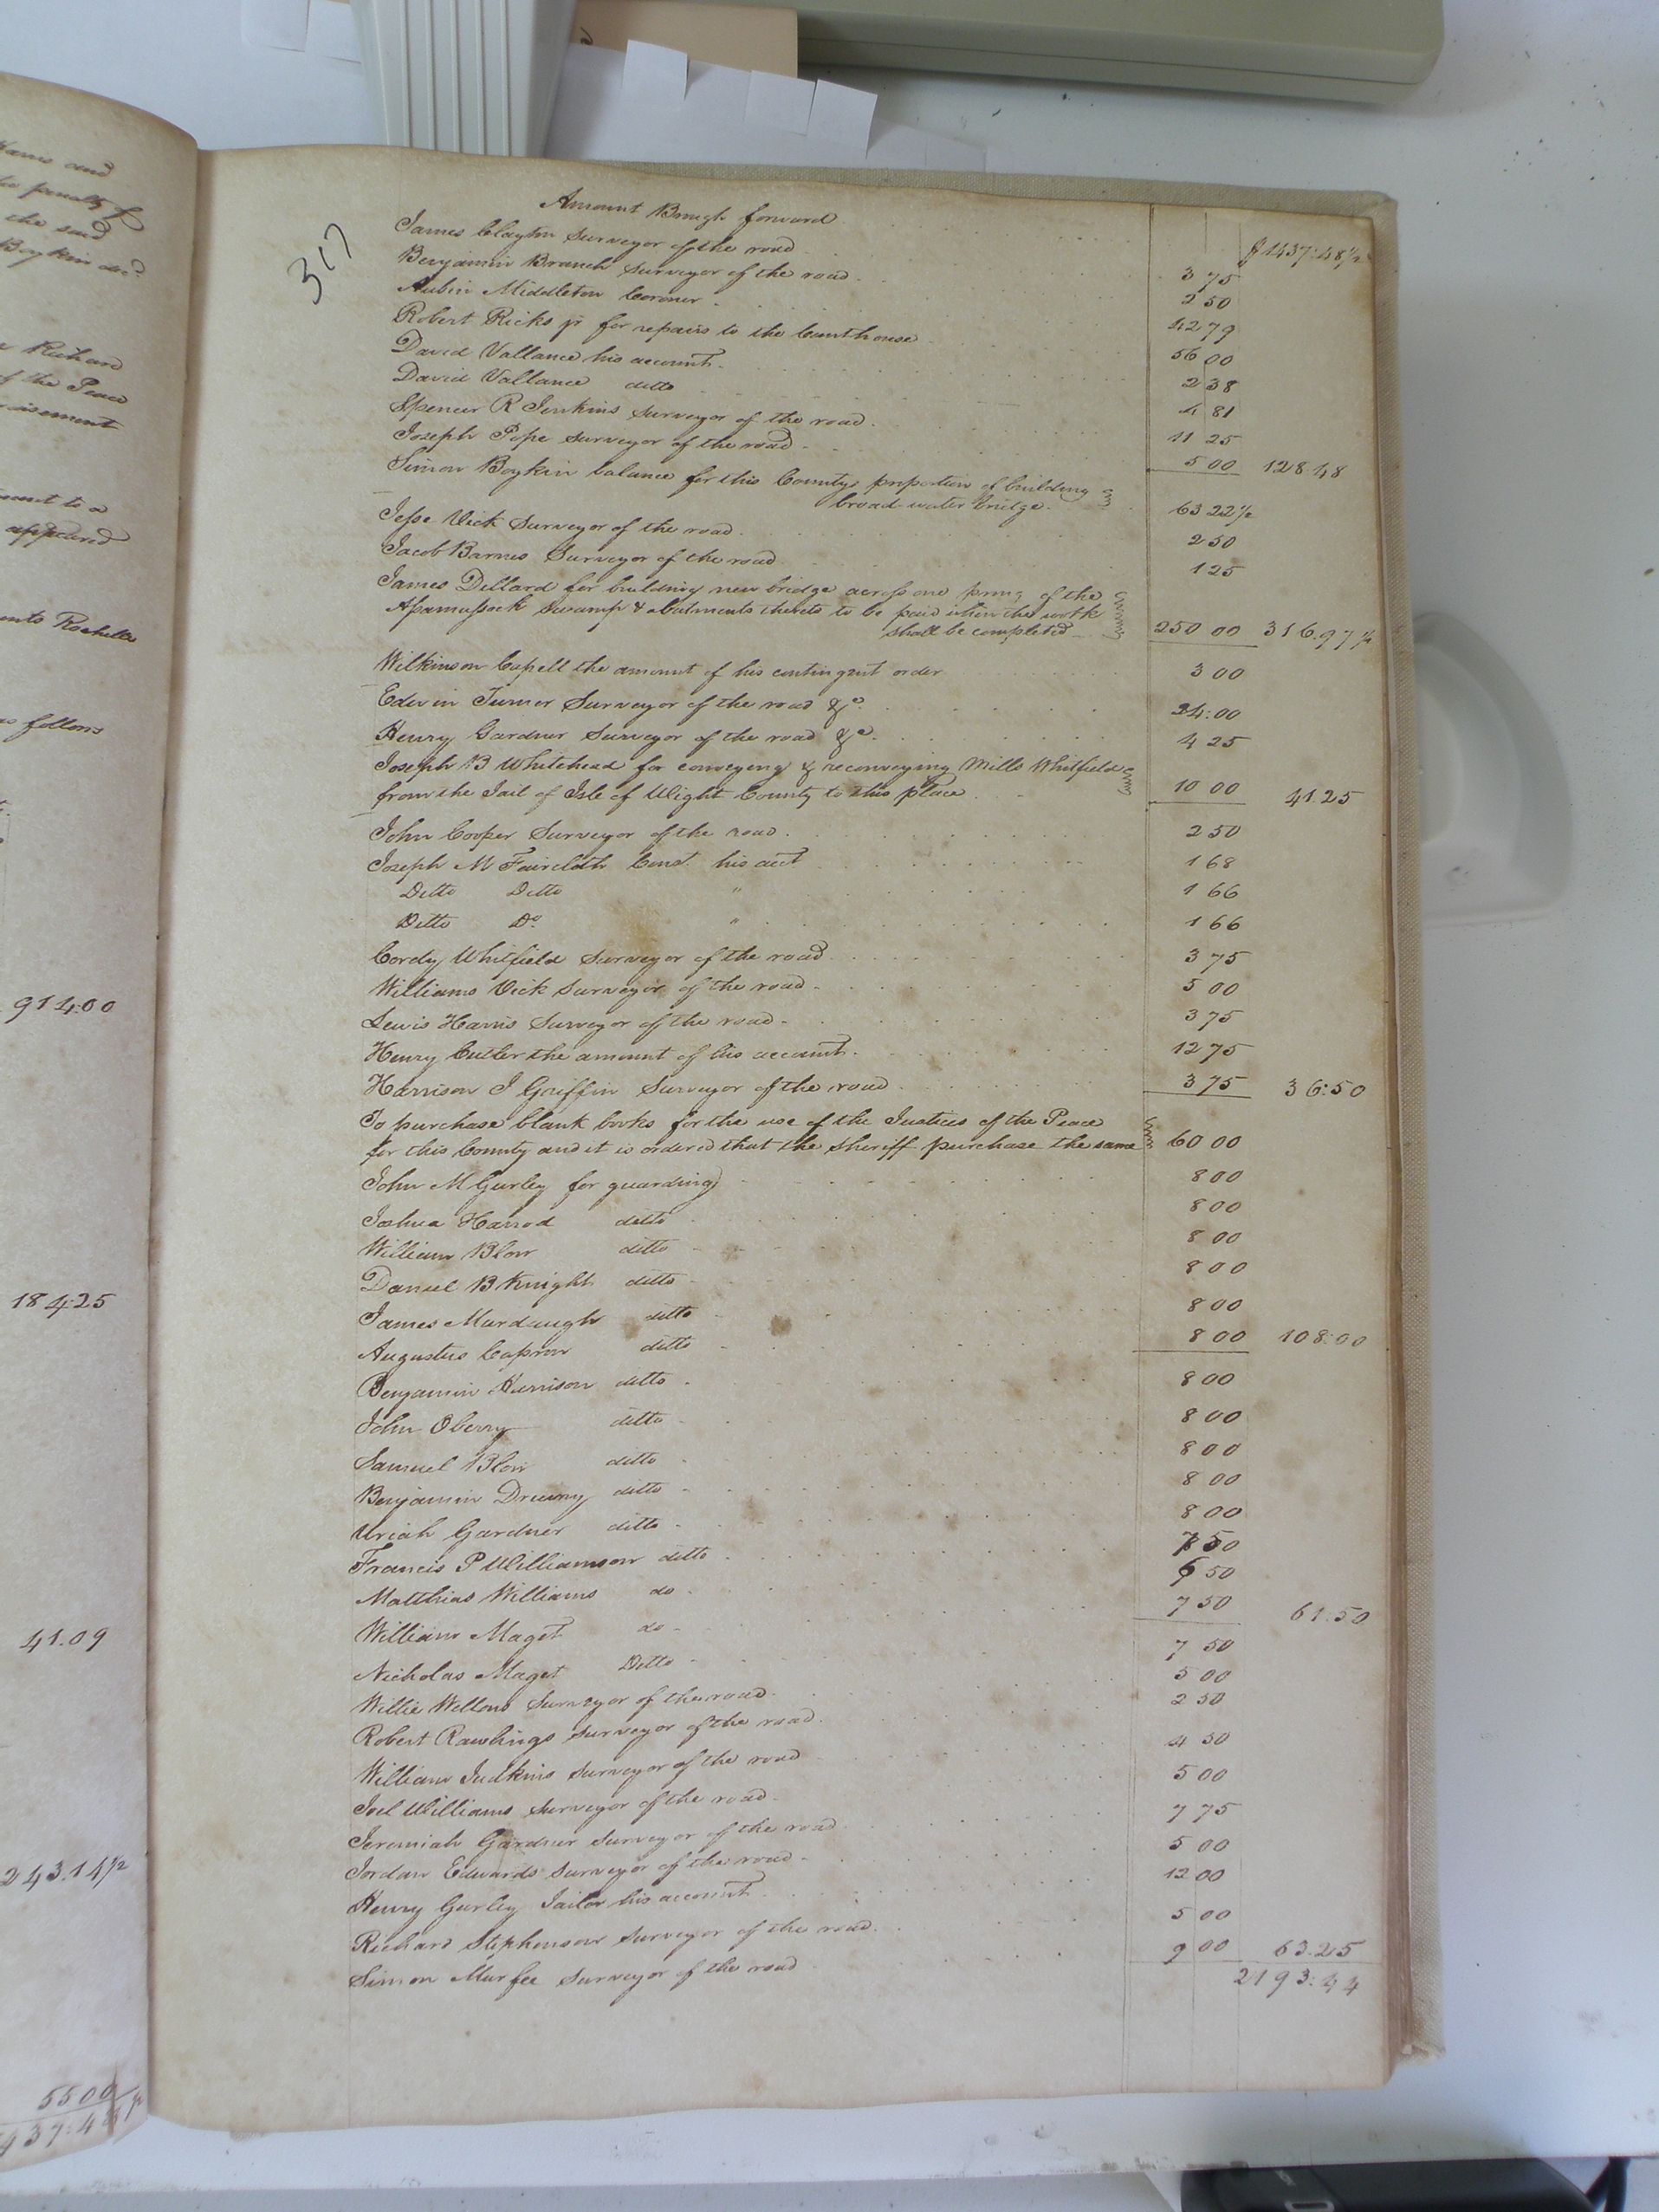 Harris and
the penalty of
the said
Boykin decd
Richard
of the Peace
appeared
Rochelle
as follows
914:00
184:25
41.09
243.14½
5500
437:48½
317
Amount Brough forward $1437:48½
James Clayton Surveyor of the road 3 75
Benjamin Branch Surveyor of the road 2 50
Aubin Middleton Coroner 42 79
Robert Ricks jr for repairs to the Courthouse 56 00
David Vallance his account 2 38
David Vallance ditto 4 81
Spencer R Jenkins Surveyor of the road 11 25
Joseph Pope Surveyor of the road 5 00 128 48
Simon Boykin balance for this Countys proportion of building
broad water bridge 63 22½
Jesse Vick Surveyor of the road 2 50
Jacob Barnes Surveyor of the road 1 25
James Dillard for building new bridge across one prong of the
Assamussock swamp & abutments thereto to be paid when the work
shall be completed 250 00 316.97½
Wilkinson Capell the amount of his contingent order 3 00
Edwin Turner Surveyor of the road &c 24:00
Henry Gardner Surveyor of the road &c 4 25
Joseph B Whitehead for conveying & reconveying Mills Whitfield
from the Jail of Isle of Wight County to this place 10 00 41.25
John Cooper Surveyor of the road 2 50
Joseph M Faircloth Const. his acct 1 68
Ditto Ditto " 1 66
Ditto Do " 1 66
Cordy Whitfield Surveyor of the road 3 75
Williams Vick Surveyor of the road 5 00
Lewis Harris Surveyor of the road 3 75
Henry Cutler the amount of his account 12 75
Harrison J Griffin Surveyor of the road 3 75 36:50
To purchase blank books for the use of the Justices of the Peace
for this County and it is ordered that the Sheriff purchase the same 60 00
John M Gurley for guarding 8 00
Joshua Harrod ditto 8 00
William Blow ditto 8 00
Daniel B Knight ditto 8 00
James Murdaugh ditto 8 00
Augustus Capron ditto 8 00 108:00
Benjamin Harrison ditto 8 00
John Oberry ditto 8 00
Samuel Blow ditto 8 00
Benjamin Drewry ditto 8 00
Uriah Gardner ditto 8 00
Francis P Williamson ditto 7 50
Matthias Williams do 6 50
William Maget do 7 50 61:50
Nicholas Maget Ditto 7 50
Willie Wellons Surveyor of the road 5 00
Robert Rawlings Surveyor of the road 2 50
William Judkins Surveyor of the road 4 50
Joel Williams Surveyor of the road 5 00
Jeremiah Gardner Surveyor of the road 7 75
Jordan Edwards Surveyor of the road 5 00
Henry Gurley Jailor his account 12 00
Richard Stephenson Surveyor of the road 5 00
Simon Murfee Surveyor of the road 9 00 63.25
2193:44